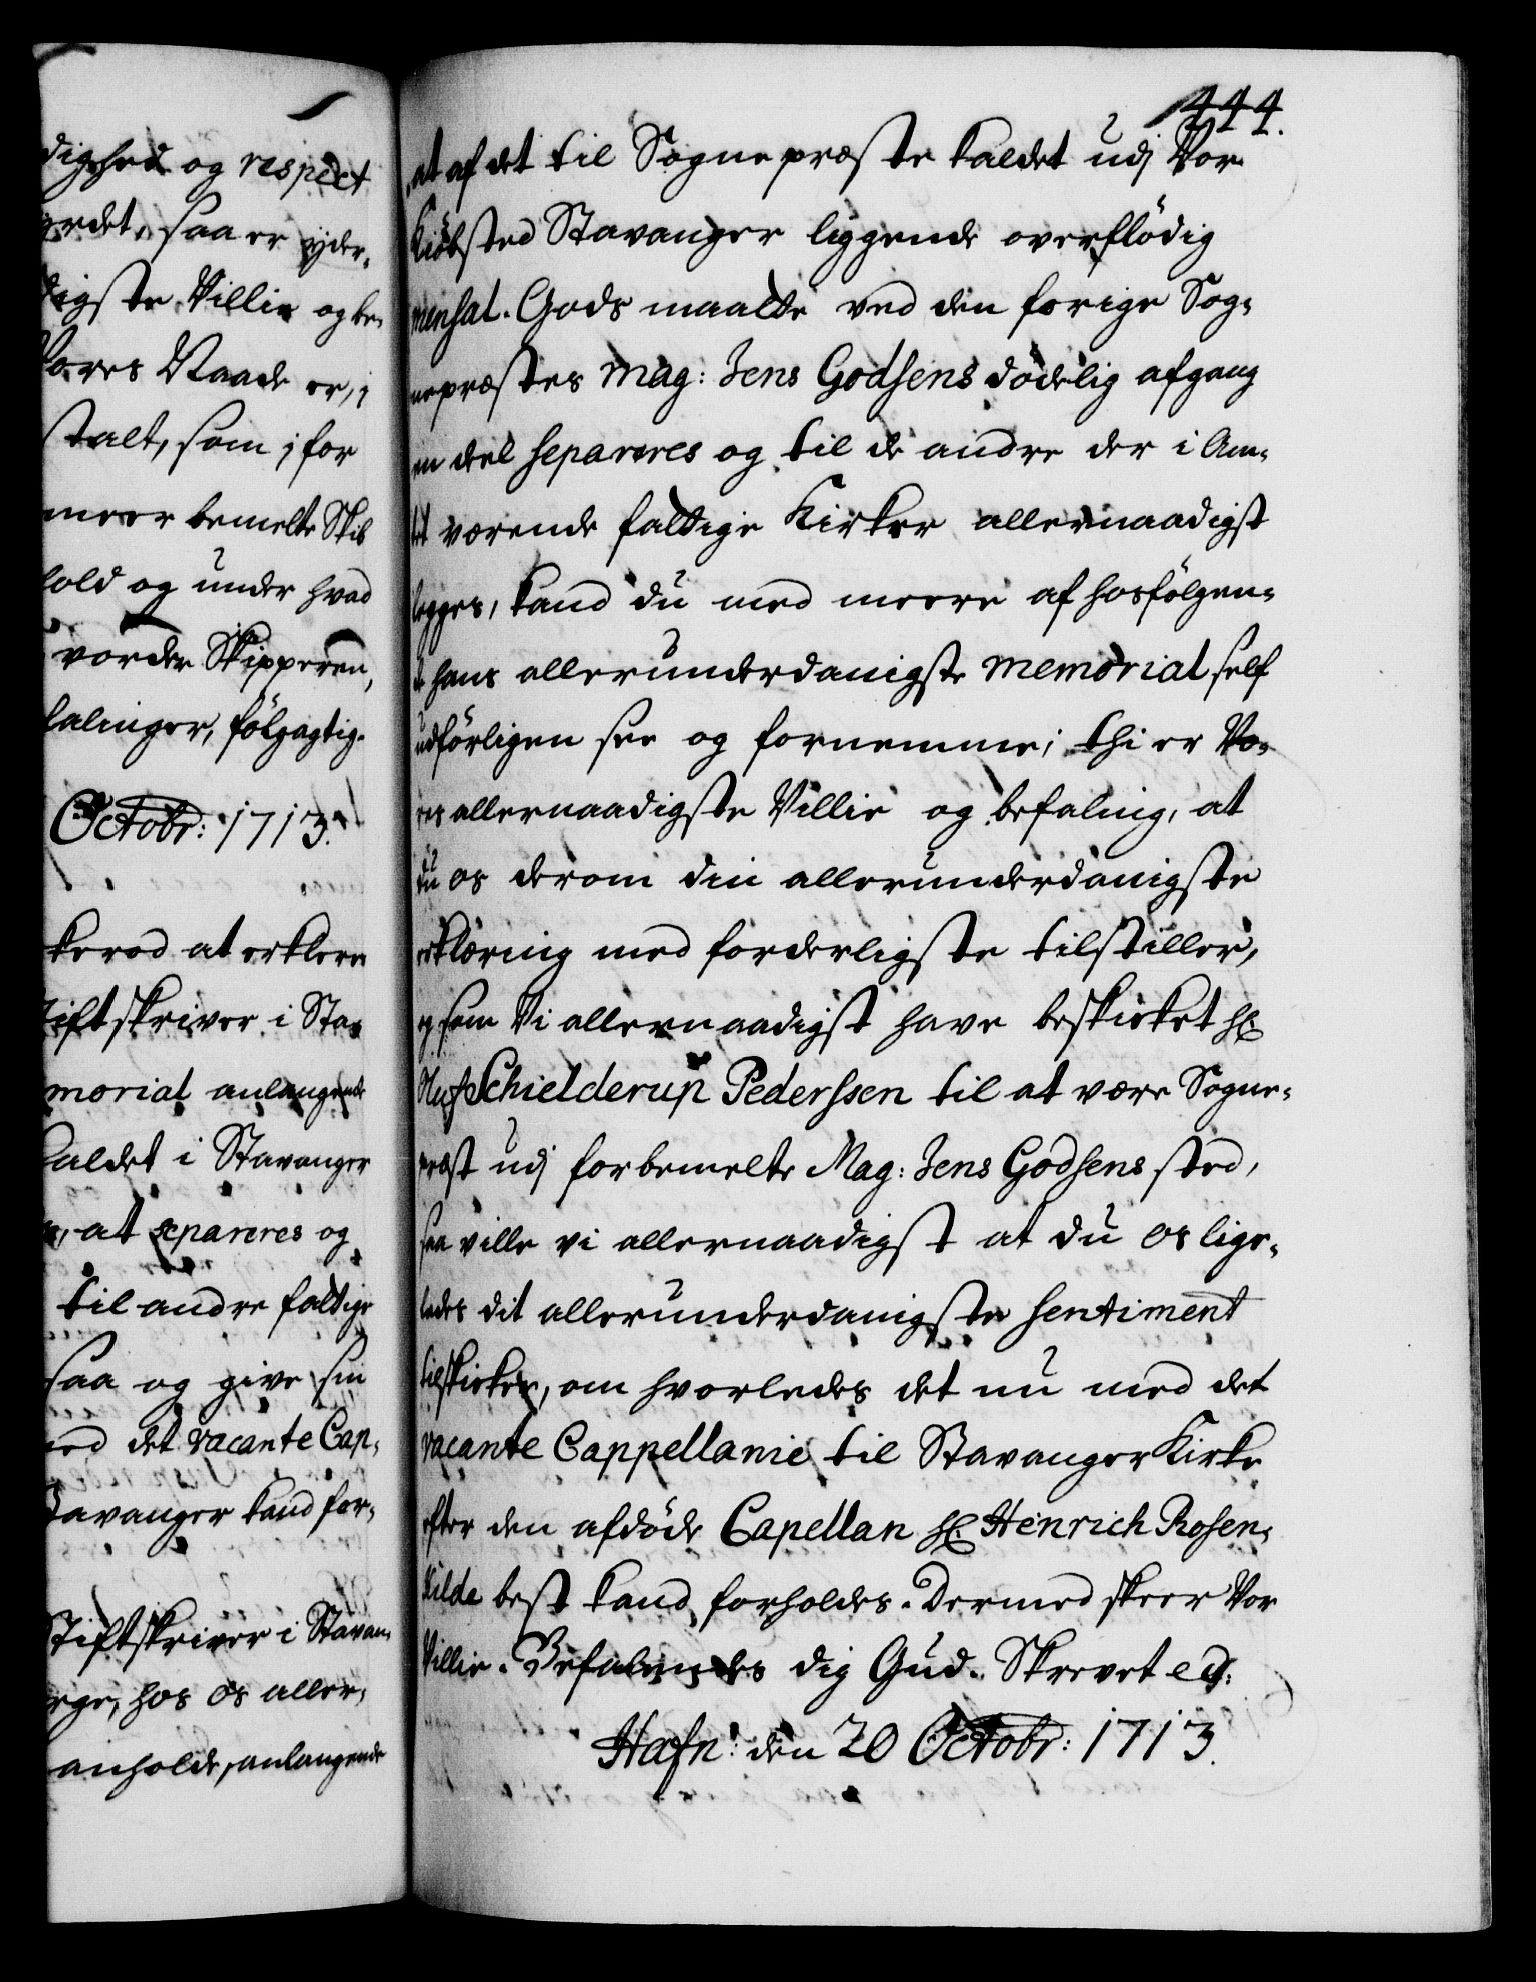 digshed og respect
erdet, saa er yder-
digste Villie og be-
Vores Naade er, i
stalt, som i for
meer bemelte Skib
hold og under hvad
vorder Skipperen,
falinger, følgagtig.
Octobr: 1713.
kerod at erklere
tiftskriver i Sta-
morial anlangende
Caldet i Stavanger
at separeres og
til andre fattige
saa og give sin
med det vacante Cap-
Stavanger kand for-
Stiftskriver i Stavan-
hos os aller-
anholde, anlangende
444.
at af det til Sognepræste kaldet udj Vor
Kiøbsted Stavanger liggende overflødig
mensal-Gods maatte ved den forige Sog-
nepræstes Mag: Jens Godsens dødelig afgang
en deel separeres og til de andre der i Am-
tet værende fattige Kirker allernaadigst
legges, kand du med meere af hosfølgen-
de hans allerunderdanigste memorial self
udførligen see og fornemme; thi er Vo-
res allernaadigste Villie og befaling, at
du os derom din allerunderdanigste
erklæring med forderligste tilstiller,
og som Vi allernaadigst have beskicket hr.
Oluf Schielderup Pederssen til at være Sogne-
præst udj forbemelte Mag: Jens Godsens sted,
saa ville vi allernaadigst at du os lige-
ledes dit allerunderdanigste sentiment
tilskicker, om hvorledes det nu med det
vacante Cappellanie til Stavanger Kirke
efter den afdøde Capellan hr. Henrich Rosen-
kilde best kand forholdes. Dermed skeer Vor
Villie. Befalendes dig Gud. Skrevet etc:
Hafn: den 20 Octobr: 1713.